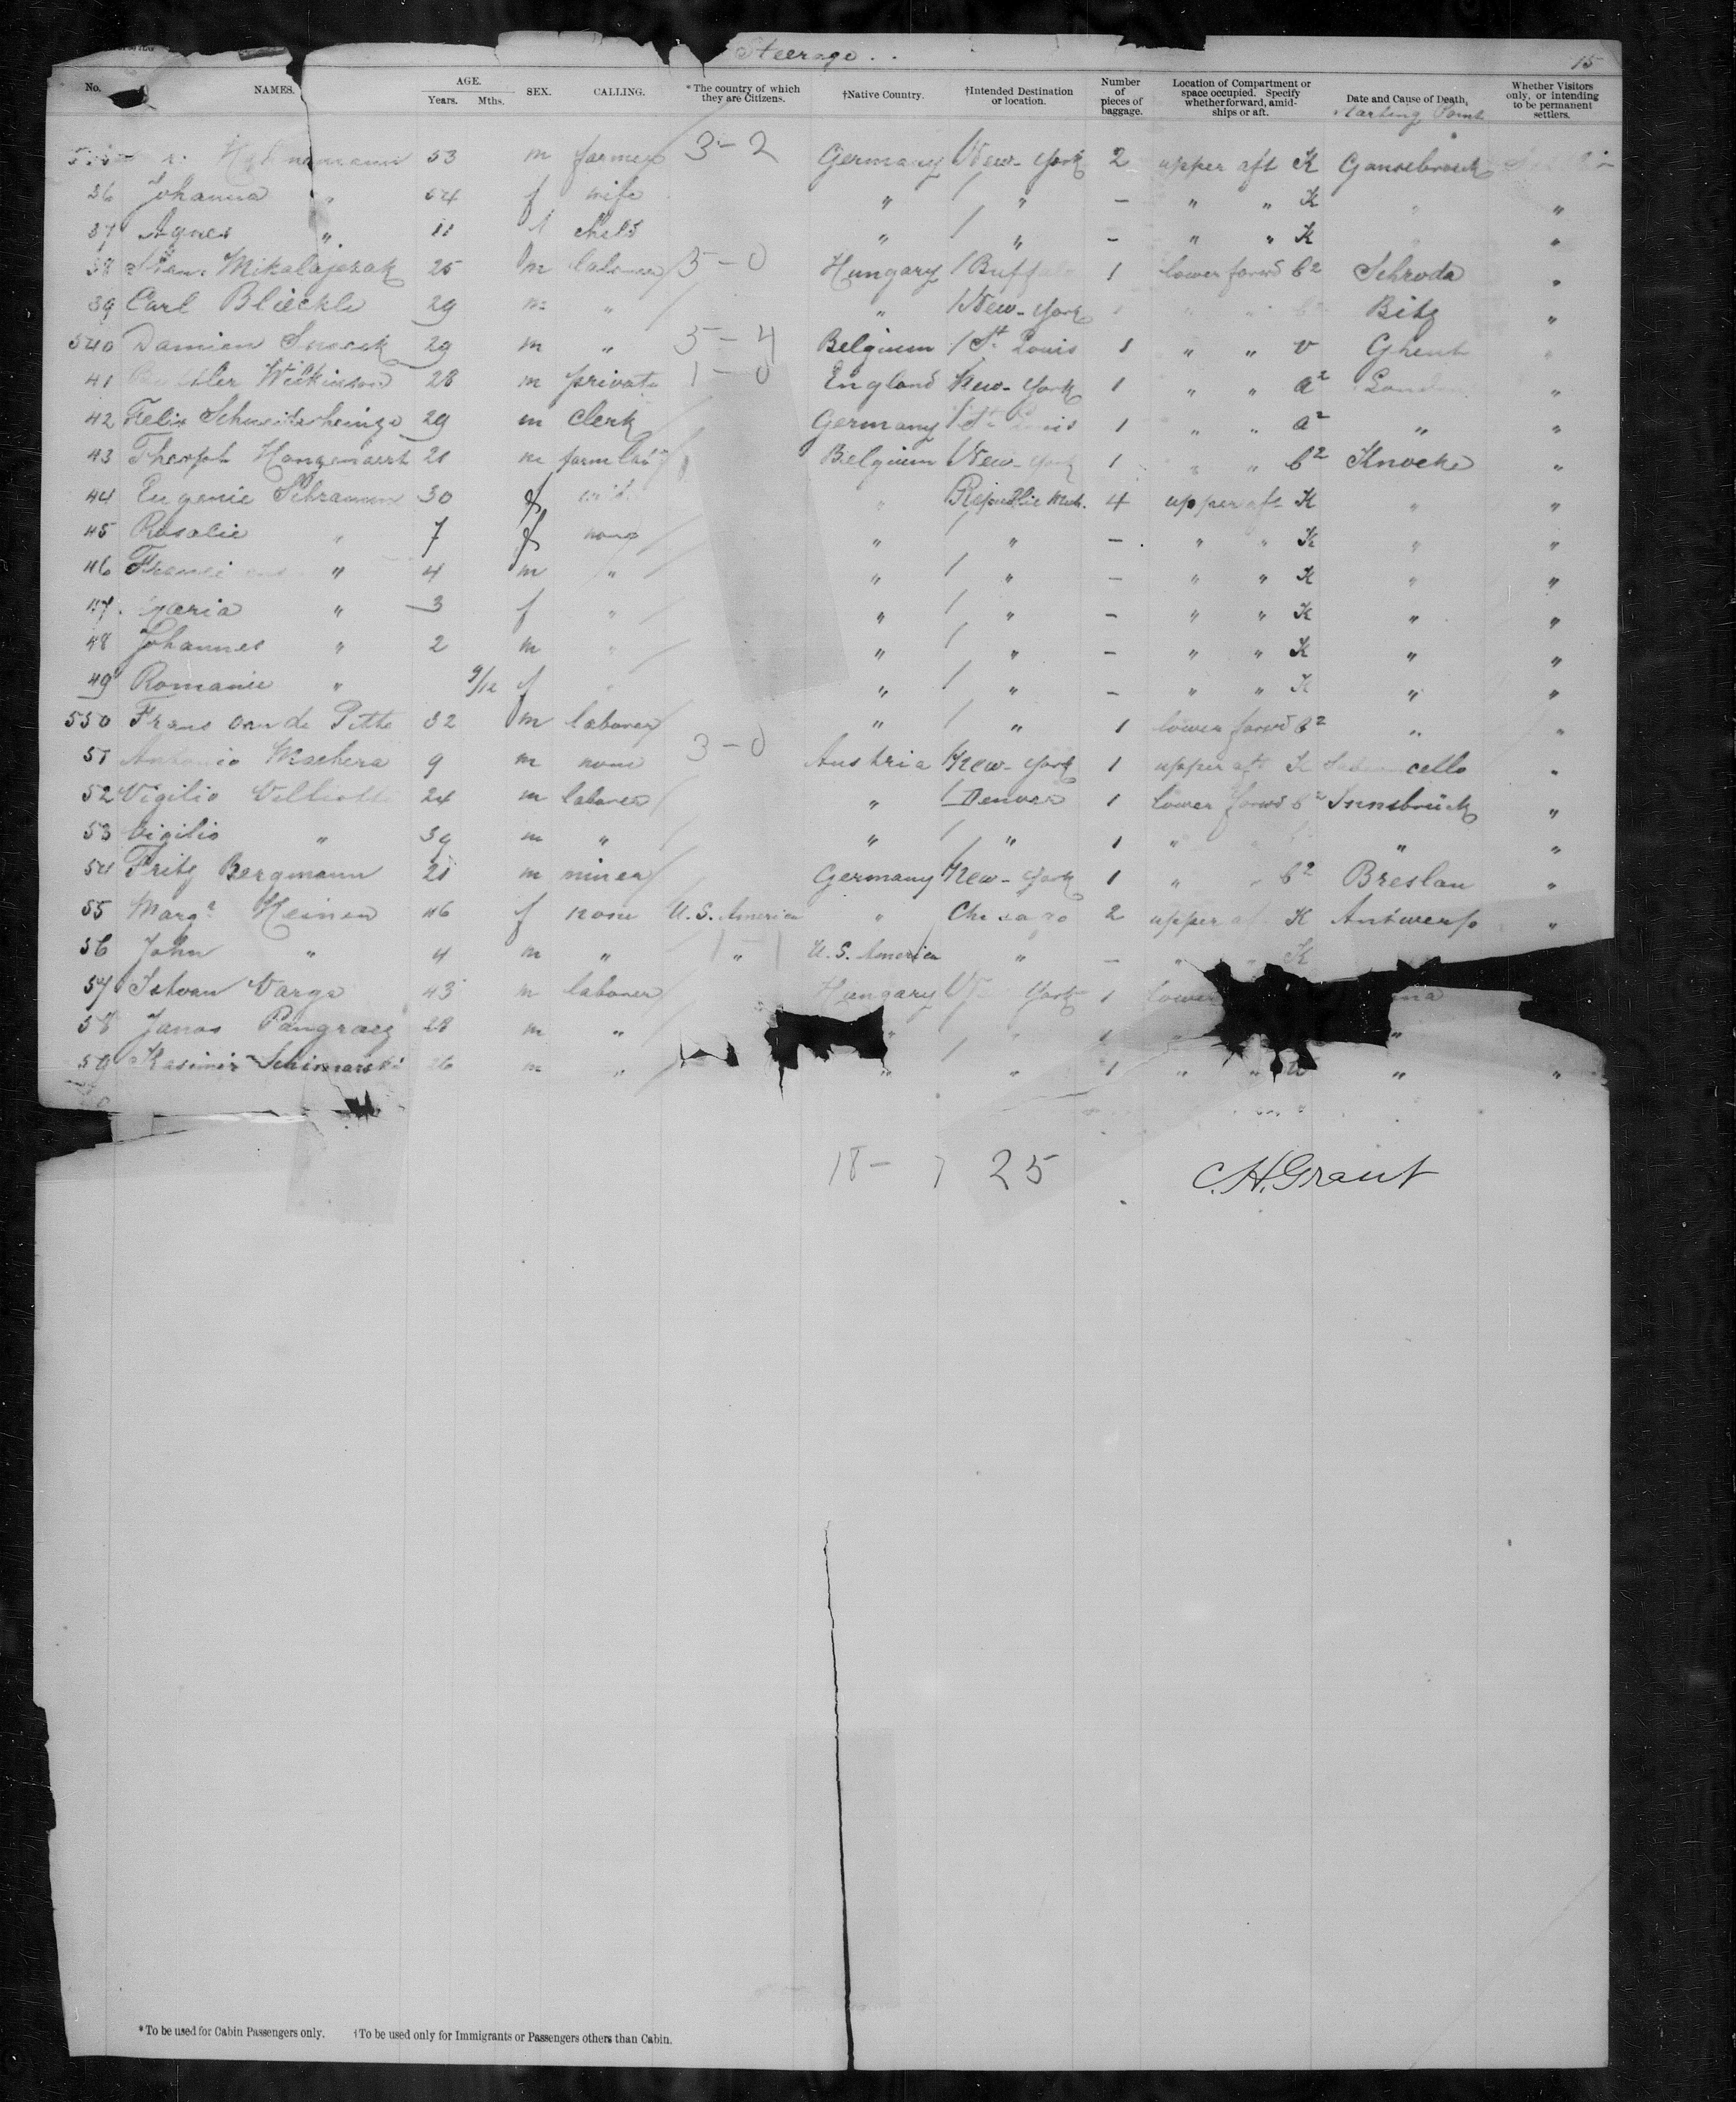 Steerage. 15
No. NAMES. AGE. Years. Mths. SEX. CALLING. *The country of which they are Citizens. †Native Country. †Intended Destination or location. Number of pieces of baggage. Location of Compartment or space occupied. Specify whether forward, amidships or aft. Date and Cause of Death, Whether Visitors only, or intending to be permanent settlers.
Starting Point
53 m farmer 3-2 Germany New-York 2 upper aft K
36 Johanna " 54 f wife " " - " " K " "
37 Agnes " 11 f child " " - " " K " "
38 Mikolajczak 25 m laborer 5-0 Hungary Buffalo 1 lower forwd b2 Schroda "
39 Carl Blickle 29 m " " New-York Bitz "
540 Damien Snoeck 29 m " 5-4 Belgium St Louis 1 " " v Ghent "
41 Wilkinson 28 m private 1-0 England New-York 1 " " a2 London "
42 Felix Schneiderheinze 29 m Clerk Germany St Louis 1 " " a2 " "
43 21 m farm lab Belgium New-York 1 " " b2 Knocke "
44 Eugenie Schramm 30 f " 4 upper aft K " "
45 Rosalie " 7 f none " " - " " K " "
46 " 4 m " " " - " " K " "
47 Maria " 3 f " " " - " " K " "
48 Johannes " 2 m " " " - " " K " "
49 Romanie " 9/12 f " " " - " " K " "
550 Frans van de Pitte 32 m laborer " " 1 lower forwd b2 " "
51 Antonio 9 m none 3-0 Austria New-York 1 upper aft K cello "
52 Vigilio 24 m laborer " Denver 1 lower forwd b2 Innsbrück "
53 Vigilio " 39 m " " " 1 " " "
54 Fritz Bergmann 21 m miner Germany New-York 1 " " b2 Breslau "
55 Marga Heinen 46 f none U.S. America " Chicago 2 upper aft K Antwerp "
56 John " 4 m " " U.S. America " - " K
57 Istvan Varga 43 m laborer Hungary York 1 lower
58 Janos Pangracz 28 m " " " 1 " "
59 Kasimir 26 m " " " 1 " " " "
18- 7 25 C.H.Grant
*To be used for Cabin Passengers only. †To be used only for Immigrants or Passengers others than Cabin.